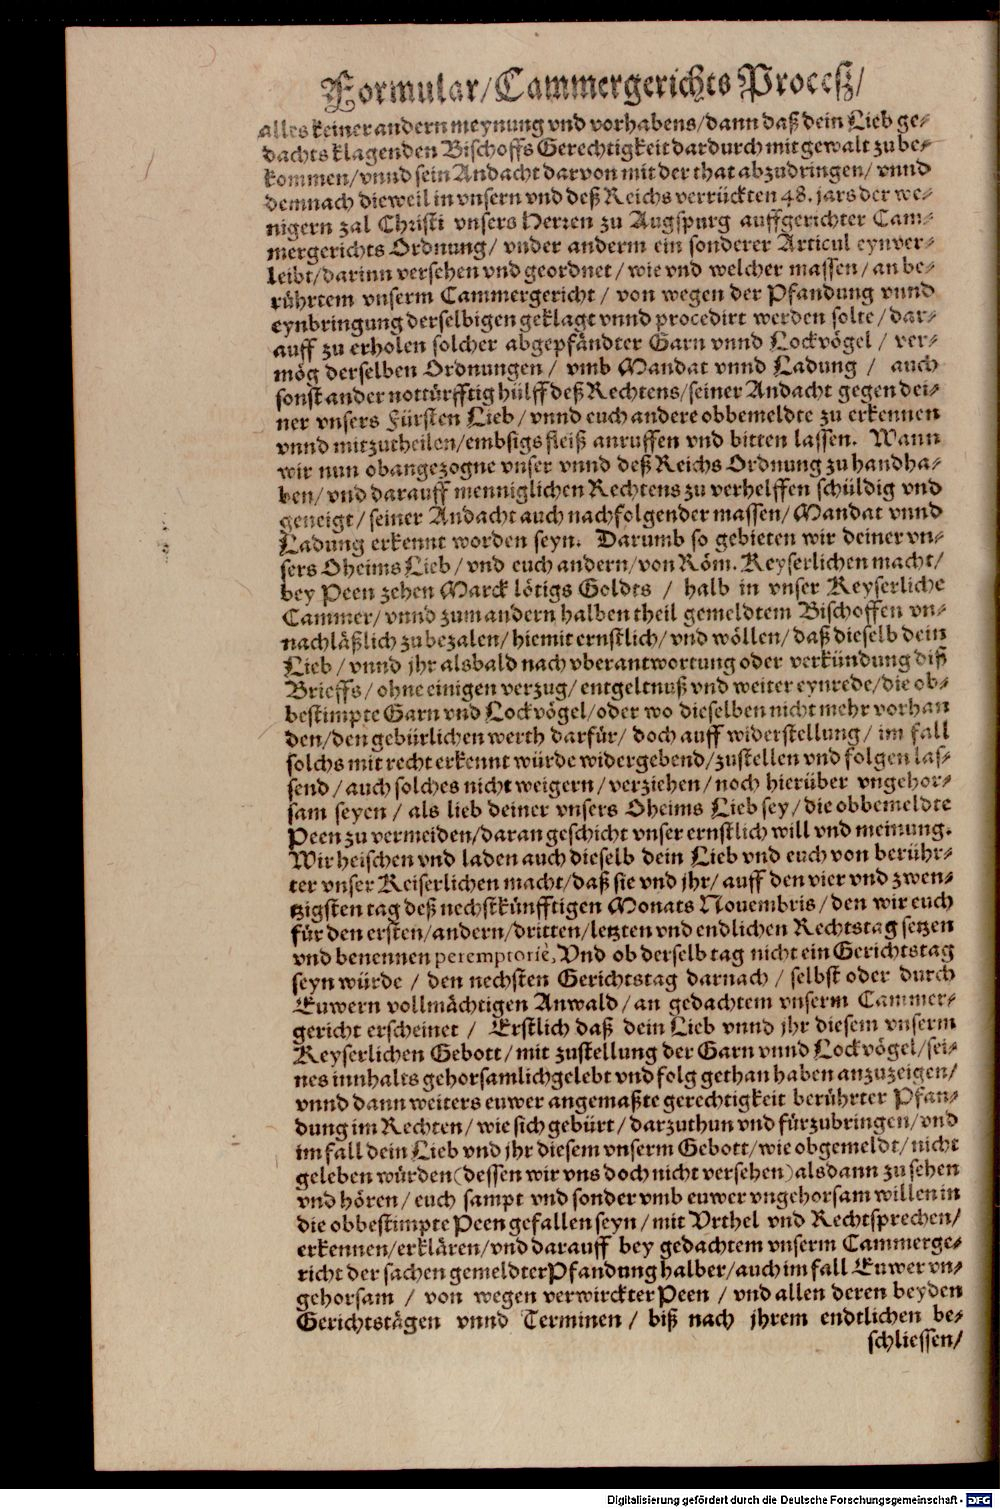 Formular/Cammergerichts Proceß/
alles keiner andern meynung vnd vorhabens/dann daß dein Lieb ge-
dachts klagenden Bischoffs Gerechtigkeit dardurch mit gewalt zu be-
kommen/vnnd sein Andacht darvon mit der that abzudringen/vnnd
demnach dieweil in vnsern vnd deß Reichs verrückten 48. jars der we-
nigern zal Christi vnsers Herren zu Augspurg auffgerichter Cam-
mergerichts Ordnung/ vnder anderm ein sonderer Articul eynver-
leibt/darinn versehen vnd geordnet/wie vnd welcher massen/an be-
rührtem vnserm Cammergericht/ von wegen der Pfandung vnnd
eynbringung derselbigen geklagt vnnd procedirt werden solte/dar-
auff zu erholen solcher abgepfändter Garn vnnd Lockvögel/ ver-
mög derselben Ordnungen/ vmb Mandat vnnd Ladung/ auch
sonst ander notturfftig hülff deß Rechtens/seiner Andacht gegen dei-
ner vnsers Fürsten Lieb/vnnd euch andere obbemeldte zu erkennen
vnnd mitzutheilen/embsigs fleiß anruffen vnd bitten lassen. Wann
wir nun obangezogne vnser vnnd deß Reichs Ordnung zu handha-
ben/vnd darauff menniglichen Rechtens zu verhelffen schüldig vnd
geneigt/seiner Andacht auch nachfolgender massen/Mandat vnnd
Ladung erkennt worden seyn. Darumb so gebieten wir deiner vn-
sers Oheims Lieb/vnd euch andern/von Röm. Keyserlichen macht/
bey Peen zehen Marck lötigs Goldts/ halb in vnser Keyserliche
Cammer/vnnd zum andern halben theil gemeldtem Bischoffen vn-
nachläßlich zu bezalen/hiemit ernstlich/vnd wöllen/daß dieselb dein
Lieb/vnnd jhr alsbald nach vberantwortung oder verkündung diß
Brieffs/ohne einigen verzug/entgeltnuß vnd weiter eynrede/die ob-
bestimpte Garn vnd Lockvögel/oder wo dieselben nicht mehr vorhan
den/den gebürlichen werth darfür/doch auff widerstellung/im fall
solchs mit recht erkennt würde widergebend/zustellen vnd folgen las-
send/auch solches nicht weigern/verziehen/noch hierüber vngehor-
sam seyen/als lieb deiner vnsers Oheims Lieb sey/die obbemeldte
Peen zu vermeiden/daran geschicht vnser ernstlich will vnd meinung.
Wir heischen vnd laden auch dieselb dein Lieb vnd euch von berühr-
ter vnser Keiserlichen macht/daß sie vnd jhr/auff den vier vnd zwen-
tzigsten tag deß nechstkünfftigen Monats Nouembris/den wir euch
für den ersten/andern/dritten/letzten vnd endlichen Rechtstag setzen
vnd benennen peremptoriè, Vnd ob derselb tag nicht ein Gerichtstag
seyn würde/ den nechsten Gerichtstag darnach/ selbst oder durch
Euwern vollmächtigen Anwald/an gedachtem vnserm Cammer-
gericht erscheinet/ Erstlich daß dein Lieb vnnd jhr diesem vnserm
Keyserlichen Gebott/mit zustellung der Garn vnnd Lockvögel/sei-
nes innhalts gehorsamlich gelebt vnd folg gethan haben anzuzeigen/
vnnd dann weiters euwer angemaßte gerechtigkeit berührter Pfan-
dung im Rechten/wie sich gebürt/darzuthun vnd fürzubringen/vnd
im fall dein Lieb vnd jhr diesem vnserm Gebott/wie obgemeldt/nicht
geleben würden (dessen wir vns doch nicht versehen) alsdann zu sehen
vnd hören/euch sampt vnd sonder vmb euwer vngehorsam willen in
die obbestimpte Peen gefallen seyn/mit Vrthel vnd Rechtsprechen/
erkennen/erklären/vnd darauff bey gedachtem vnserm Cammerge-
richt der sachen gemeldter Pfandung halber/auch im fall Euwer vn-
gehorsam/ von wegen verwirckter Peen/vnd allen deren beyden
Gerichtstägen vnnd Terminen/ biß nach jhrem endtlichen be-
schliessen/
Digitalisierung gefördert durch die Deutsche Forschungsgemeinschaft - DFG